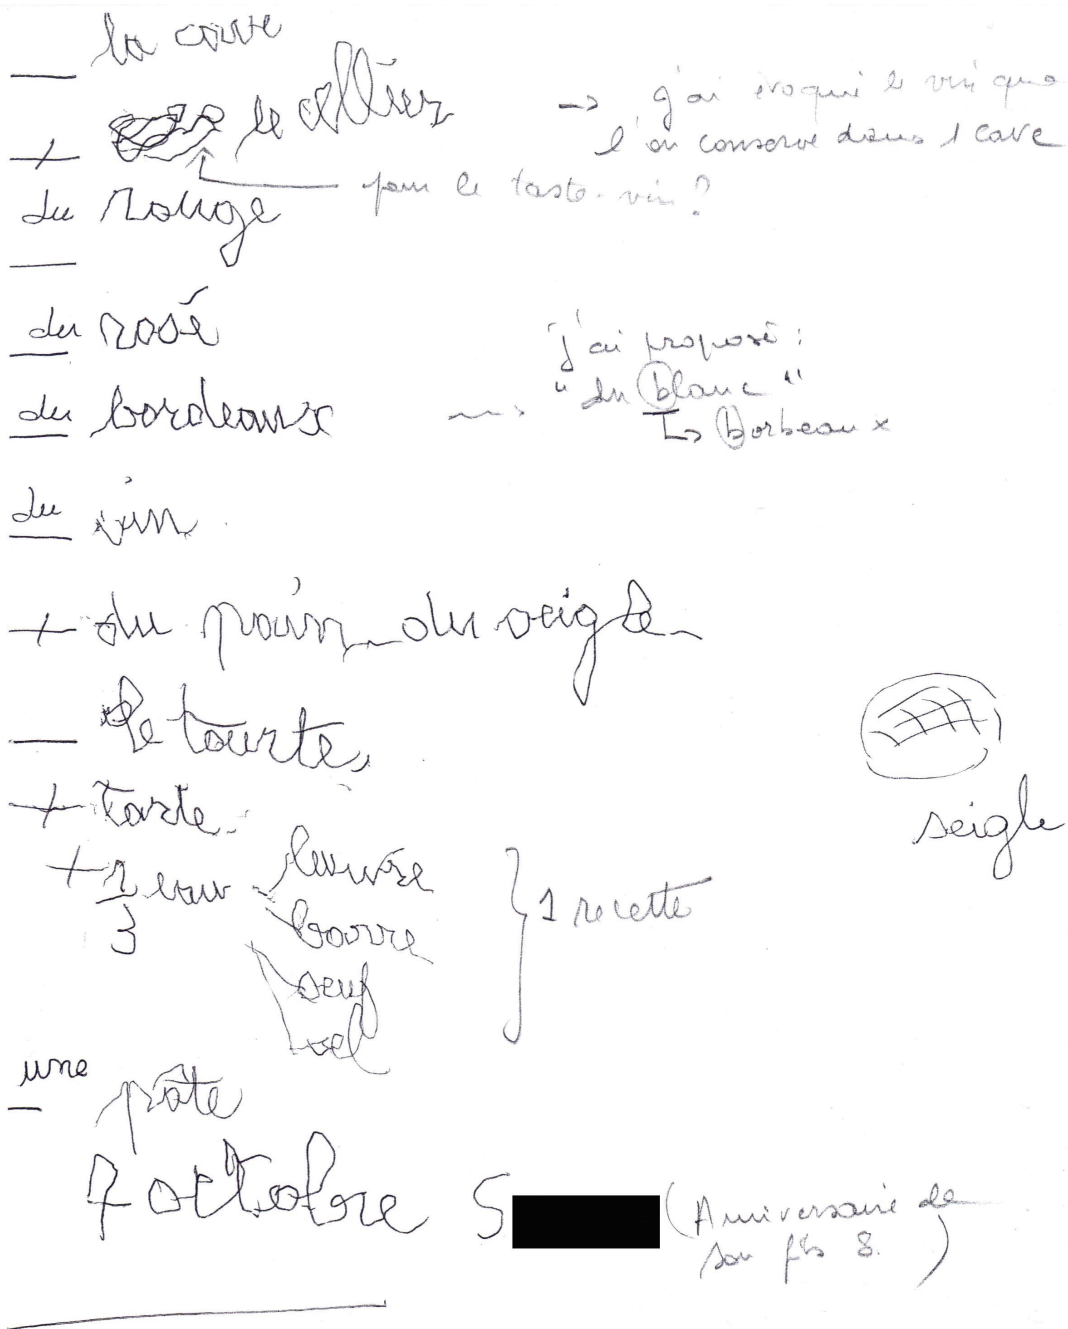 la cave
le cellier
→ j'ai évoqué le vin que
l'on conserve dans 1 cave
pour le taste-vin ?
du rouge
du rosé
j'ai proposé :
du bordeaux
"du blanc"
↳ Borbeaux
du vin
+ du pain du seigle
le tourte
+ tarte
seigle
+ 1/3 eau
beurre
oeuf
sel
1 recette
une
pâte
7 octobre S
(Anniversaire de
son fils S.)